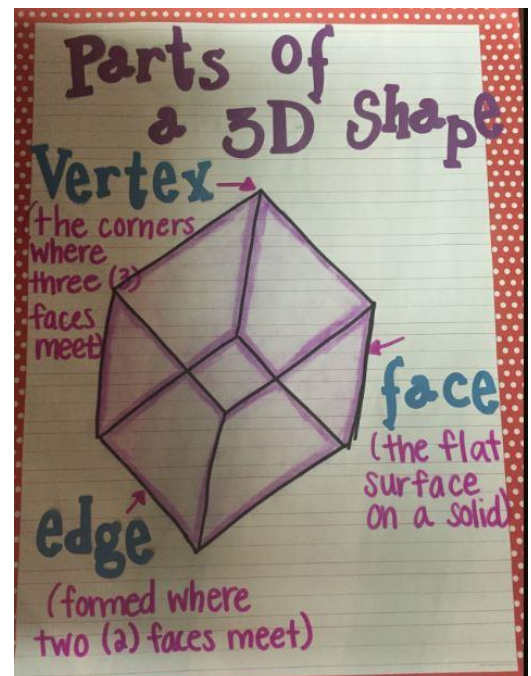 Parts of
a 3D Shape
Vertex
(the corners
where
three (3)
faces
meet)
face
(the flat
surface
on a solid)
edge
(formed where
two (2) faces meet)